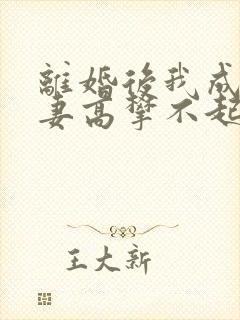 離婚後我成
妻高攀不起
王大新